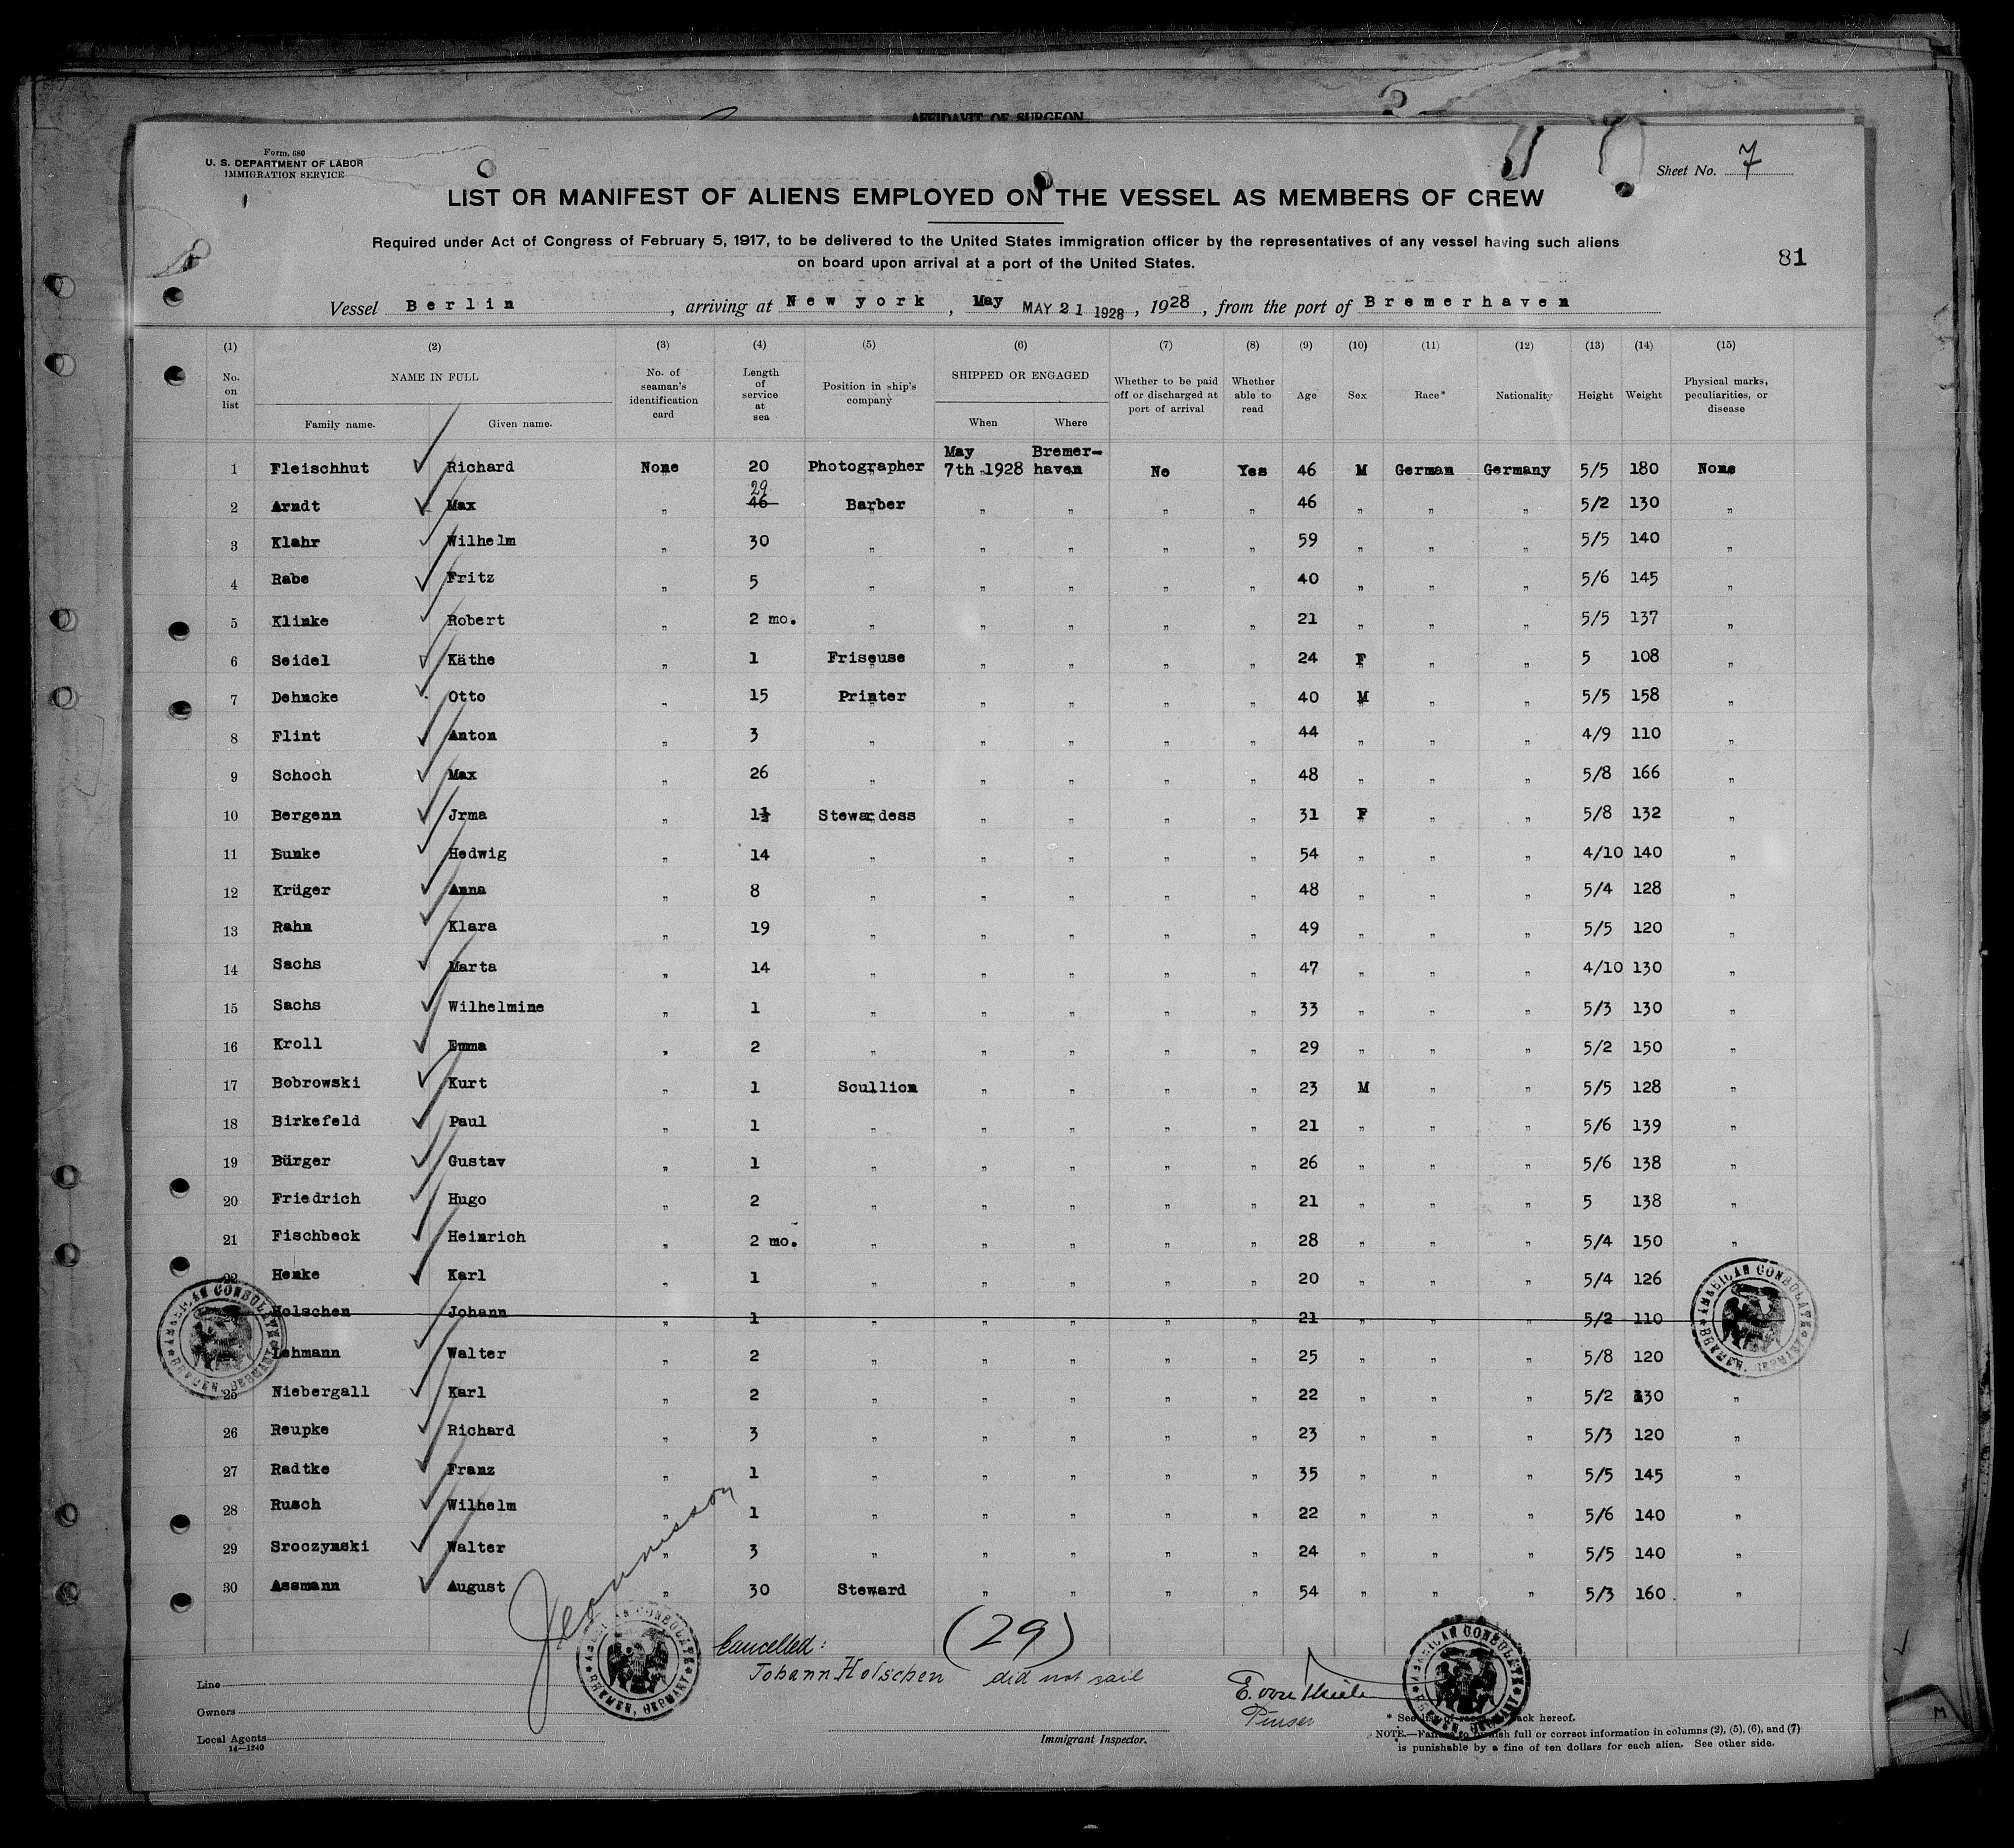 AFFIDAVIT OF SURGEON
Form, 680
U. S. DEPARTMENT OF LABOR
IMMIGRATION SERVICE
Sheet No. 7
LIST OR MANIFEST OF ALIENS EMPLOYED ON THE VESSEL AS MEMBERS OF CREW
Required under Act of Congress of February 5, 1917, to be delivered to the United States immigration officer by the representatives of any vessel having such aliens
on board upon arrival at a port of the United States.
81
Vessel Berlin, arriving at New york, May MAY 21 1928, 1928, from the port of Bremerhaven
(1) (2) (3) (4) (5) (6) (7) (8) (9) (10) (11) (12) (13) (14) (15)
No. on list NAME IN FULL Family name. Given name. No. of seaman's identification card Length of service at sea Position in ship's company SHIPPED OR ENGAGED When Where Whether to be paid off or discharged at port of arrival Whether able to read Age Sex Race* Nationality Height Weight Physical marks, peculiarities, or disease
1 Fleischhut Richard None 20 Photographer May 7th 1928 Bremer-haven No Yes 46 M German Germany 5/5 180 None
2 Arndt Max „ 46 29 Barber „ „ „ „ 46 „ „ „ 5/2 130 „
3 Klahr Wilhelm „ 30 „ „ „ „ „ 59 „ „ „ 5/5 140 „
4 Rabe Fritz „ 5 „ „ „ „ „ 40 „ „ „ 5/6 145 „
5 Klinke Robert „ 2 mo. „ „ „ „ „ 21 „ „ „ 5/5 137 „
6 Seidel Käthe „ 1 Friseuse „ „ „ „ 24 F „ „ 5 108 „
7 Dehncke Otto „ 15 Printer „ „ „ „ 40 M „ „ 5/5 158 „
8 Flint Anton „ 3 „ „ „ „ „ 44 „ „ „ 4/9 110 „
9 Schoch Max „ 26 „ „ „ „ „ 48 „ „ „ 5/8 166 „
10 Bergenn Jrma „ 1½ Stewardess „ „ „ „ 31 F „ „ 5/8 132 „
11 Bunke Hedwig „ 14 „ „ „ „ „ 54 „ „ „ 4/10 140 „
12 Krüger Anna „ 8 „ „ „ „ „ 48 „ „ „ 5/4 128 „
13 Rahn Klara „ 19 „ „ „ „ „ 49 „ „ „ 5/5 120 „
14 Sachs Marta „ 14 „ „ „ „ „ 47 „ „ „ 4/10 130 „
15 Sachs Wilhelmine „ 1 „ „ „ „ „ 33 „ „ „ 5/3 130 „
16 Kroll Emma „ 2 „ „ „ „ „ 29 „ „ „ 5/2 150 „
17 Bobrowski Kurt „ 1 Scullion „ „ „ „ 23 M „ „ 5/5 128 „
18 Birkefeld Paul „ 1 „ „ „ „ „ 21 „ „ „ 5/6 139 „
19 Bürger Gustav „ 1 „ „ „ „ „ 26 „ „ „ 5/6 138 „
20 Friedrich Hugo „ 2 „ „ „ „ „ 21 „ „ „ 5 138 „
21 Fischbeck Heinrich „ 2 mo. „ „ „ „ „ 28 „ „ „ 5/4 150 „
22 Henke Karl „ 1 „ „ „ „ „ 20 „ „ „ 5/4 126
Holschen Johann „ 1 „ „ „ „ „ 21 „ „ „ 5/2 110
Lehmann Walter „ 2 „ „ „ „ „ 25 „ „ „ 5/8 120
25 Niebergall Karl „ 2 „ „ „ „ „ 22 „ „ „ 5/2 130 „
26 Reupke Richard „ 3 „ „ „ „ „ 23 „ „ „ 5/3 120 „
27 Radtke Franz „ 1 „ „ „ „ „ 35 „ „ „ 5/5 145 „
28 Rusch Wilhelm „ 1 „ „ „ „ „ 22 „ „ „ 5/6 140 „
29 Sroczynski Walter „ 3 „ „ „ „ „ 24 „ „ „ 5/5 140 „
30 Assmann August „ 30 Steward „ „ „ „ 54 „ „ „ 5/3 160 „
AMERICAN CONSULATE BREMEN, GERMANY
AMERICAN CONSULATE BREMEN, GERMANY
AMERICAN CONSULATE BREMEN, GERMANY
AMERICAN CONSULATE BREMEN, GERMANY
Cancelled: (29)
Johann Holschen did not sail
Line
Owners
Local Agents
14—1240
Immigrant Inspector.
* See list of races back hereof.
NOTE.—Failure to furnish full or correct information in columns (2), (5), (6), and (7)
is punishable by a fine of ten dollars for each alien. See other side.